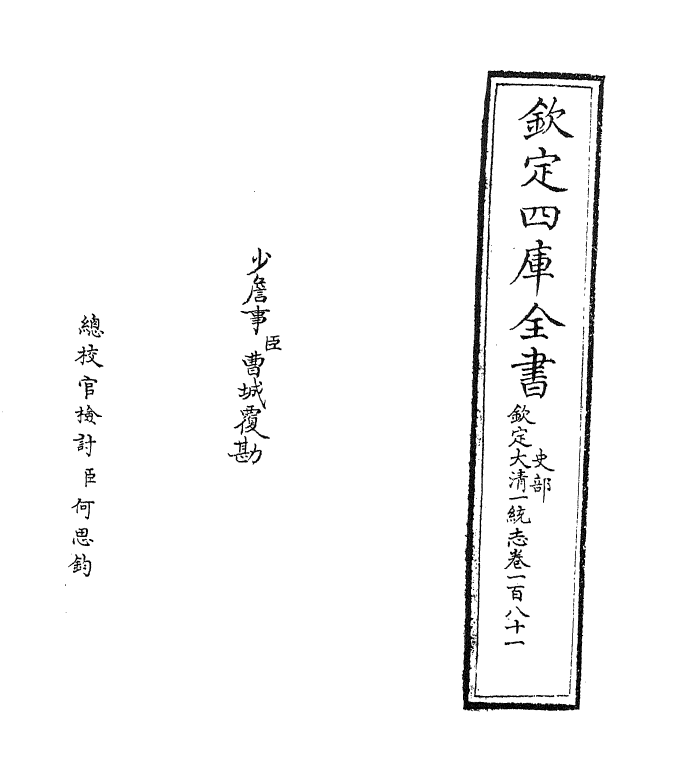 欽定四庫全書
史部
欽定大清一統志卷一百八十一
少詹事臣曹城覆勘
總校官檢討臣何思鈞